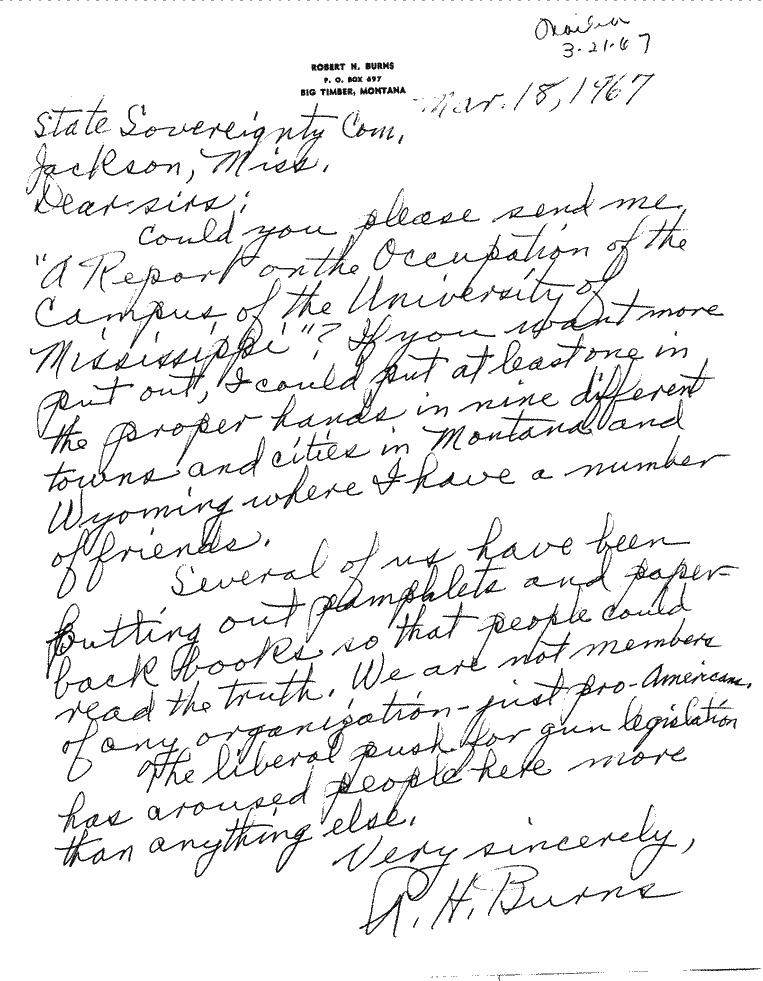 Mailed
3-21-67
ROBERT N. BURNS
P. O. BOX 697
BIG TIMBER, MONTANA
Mar. 18, 1967
State Sovereignty Com,
Jackson, Miss.
Dear sirs:
Could you please send me
"A Report on the Occupation of the
Campus of the University of
Mississippi"? If you want more
put out, I could put at least one in
the proper hands in nine different
towns and cities in Montana and
Wyoming where I have a number
of friends.
Several of us have been
putting out pamphlets and paper-
back books so that people could
read the truth. We are not members
of any organization - just pro-Americans.
The liberal push for gun legislation
has aroused people here more
than anything else.
Very sincerely,
R. H. Burns